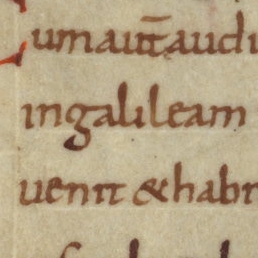 Cum aut̄ audi
in galileam
uenit & hab